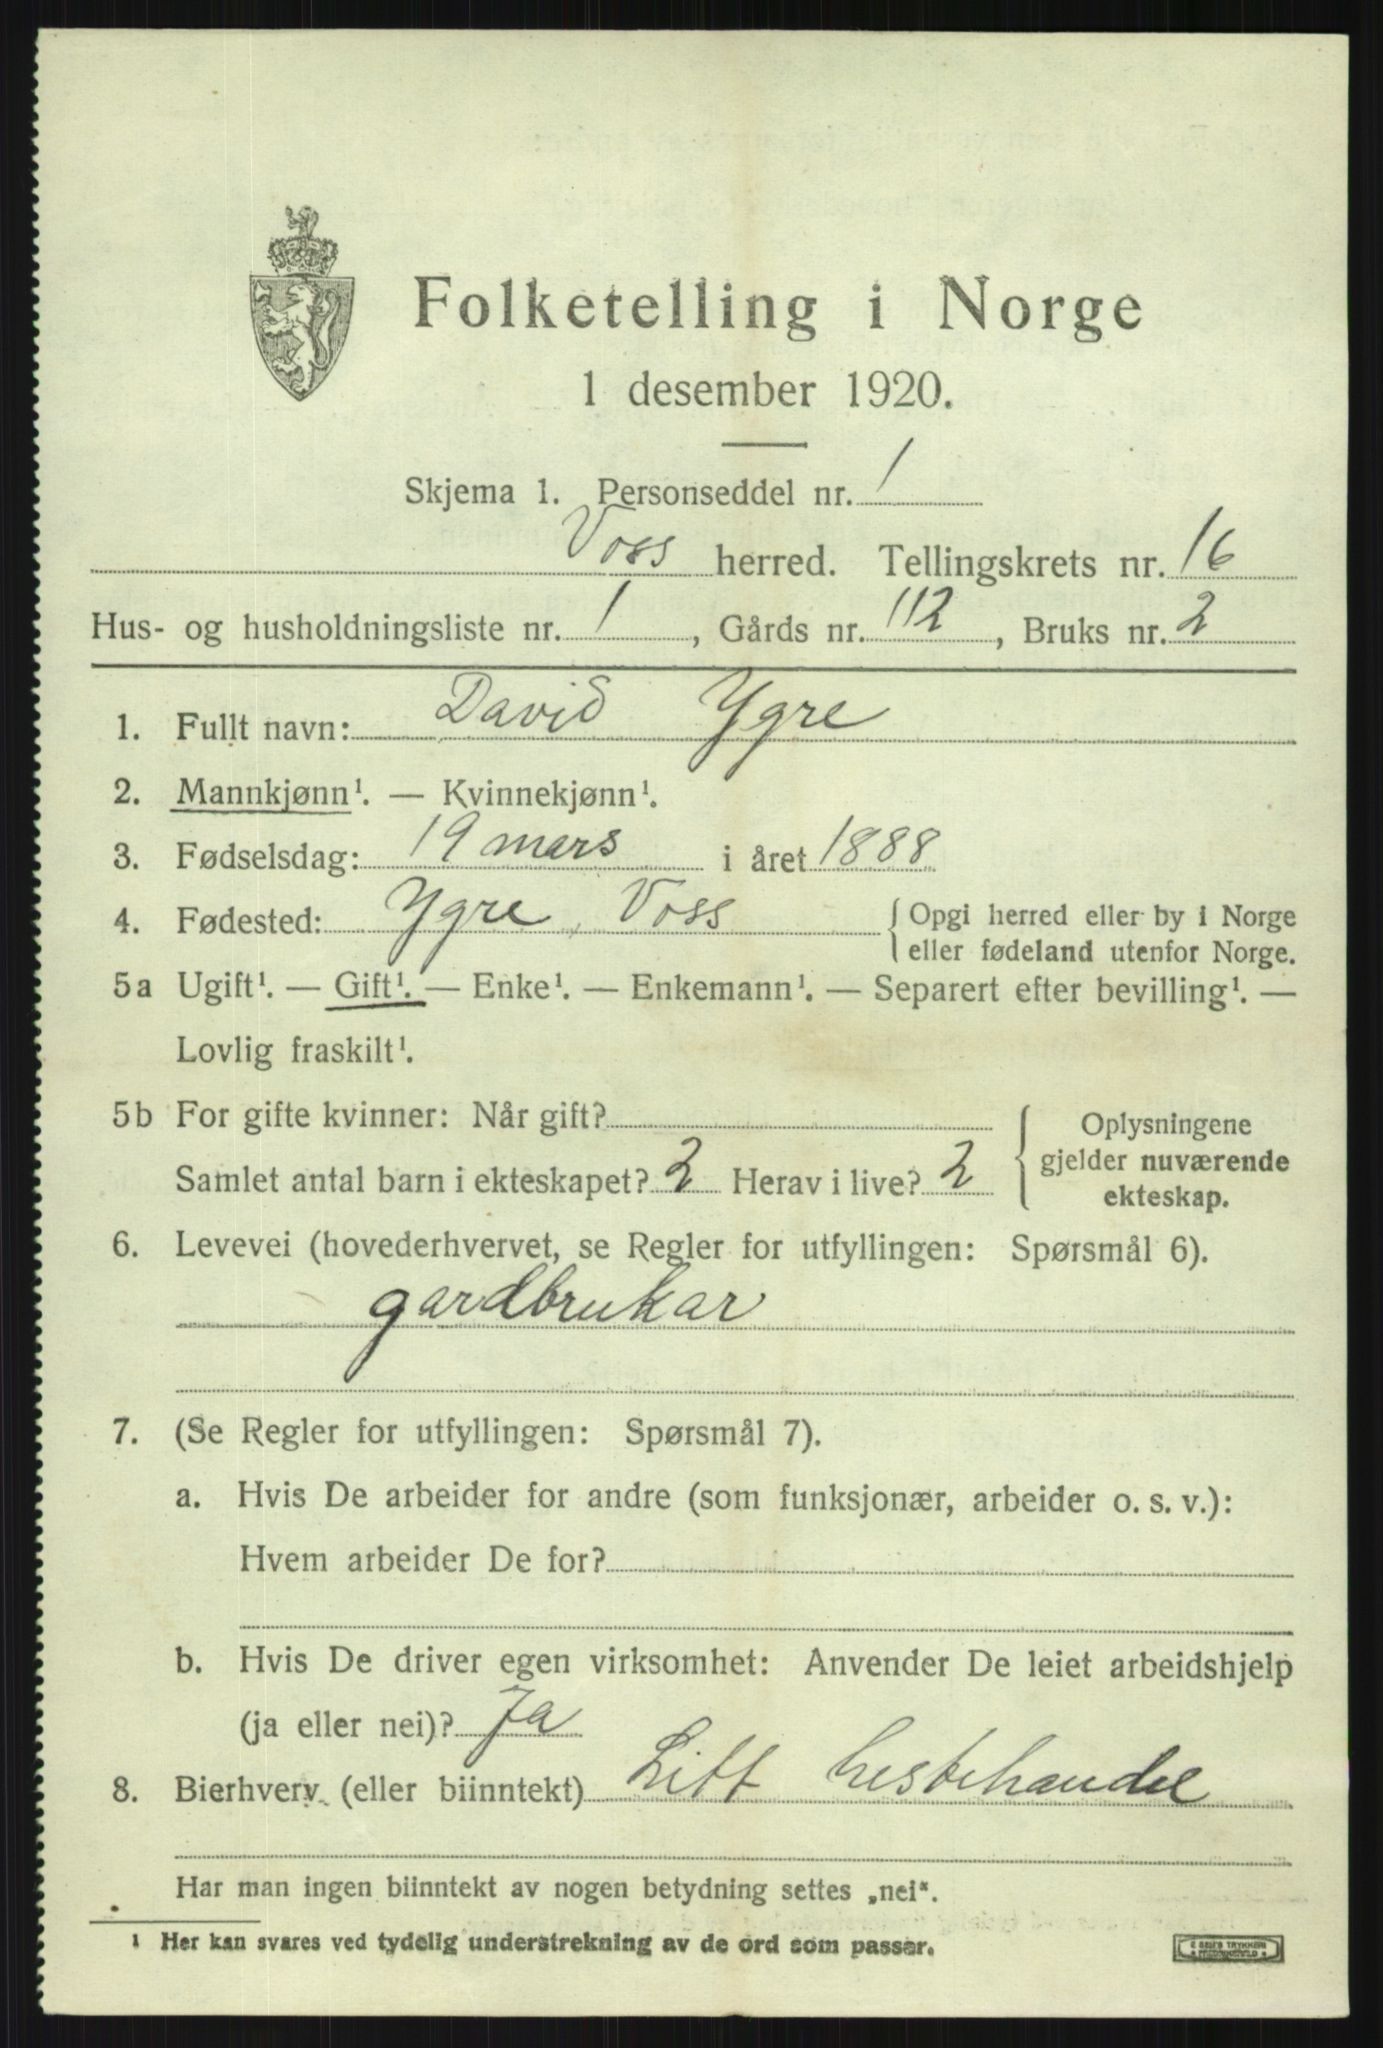 Folketelling i Norge
1 desember 1920.
Skjema 1. Personseddel nr. 1
Voss herred. Tellingskrets nr. 16
Hus- og husholdningsliste nr. 1, Gårds nr. 112, Bruks nr. 2
1. Fullt navn: David Ygre
2. Mannkjønn¹. — Kvinnekjønn¹.
3. Fødselsdag: 19 mars i året 1888
4. Fødested: Ygre, Voss { Opgi herred eller by i Norge
eller fødeland utenfor Norge.
5a Ugift¹. — Gift¹. — Enke¹. — Enkemann¹. — Separert efter bevilling¹. —
Lovlig fraskilt¹.
5b For gifte kvinner: Når gift?
Samlet antal barn i ekteskapet? 2 Herav i live? 2
{ Oplysningene
gjelder nuværende
ekteskap.
6. Levevei (hovederhvervet, se Regler for utfyllingen: Spørsmål 6).
gardbrukar
7. (Se Regler for utfyllingen: Spørsmål 7).
a. Hvis De arbeider for andre (som funksjonær, arbeider o. s. v.):
Hvem arbeider De for?
b. Hvis De driver egen virksomhet: Anvender De leiet arbeidshjelp
(ja eller nei)? Ja
8. Bierhverv (eller biinntekt) Litt hestehandel
Har man ingen biinntekt av nogen betydning settes „nei“.
¹ Her kan svares ved tydelig understrekning av de ord som passer.